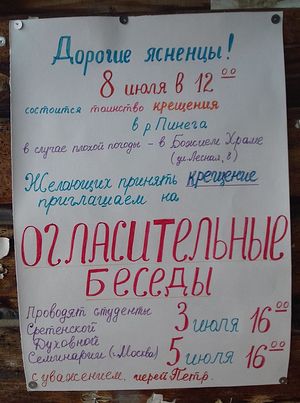 Дорогие ясненцы!
8 июля в 12 00
состоится таинство крещения
в р. Пинега
в случае плохой погоды - в Божием Храме
(ул. Лесная, 8)
Желающих принять крещение
приглашаем на
ОГЛАСИТЕЛЬНЫЕ
БЕСЕДЫ
Проводят студенты
Сретенской
Духовной
Семинарии (г. Москва)
3 июля 16 00
5 июля 16 00
с уважением, иерей Петр.